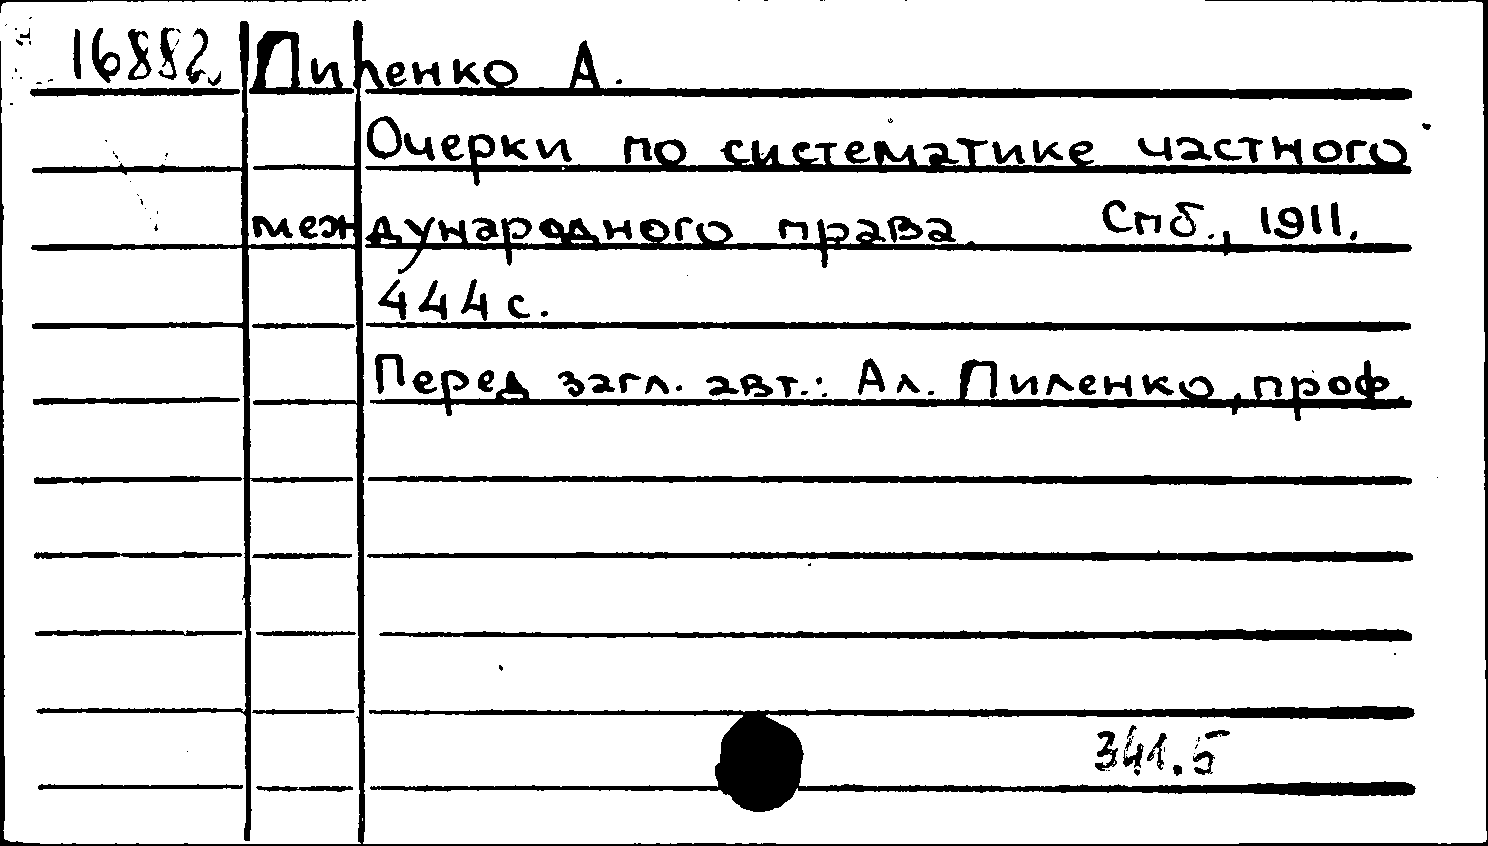 16882 Пиленко А.
Очерки по систематике частного
международного права. Спб., 1911.
444 с.
Перед загл. авт.: Ал. Пиленко, проф.
341.5